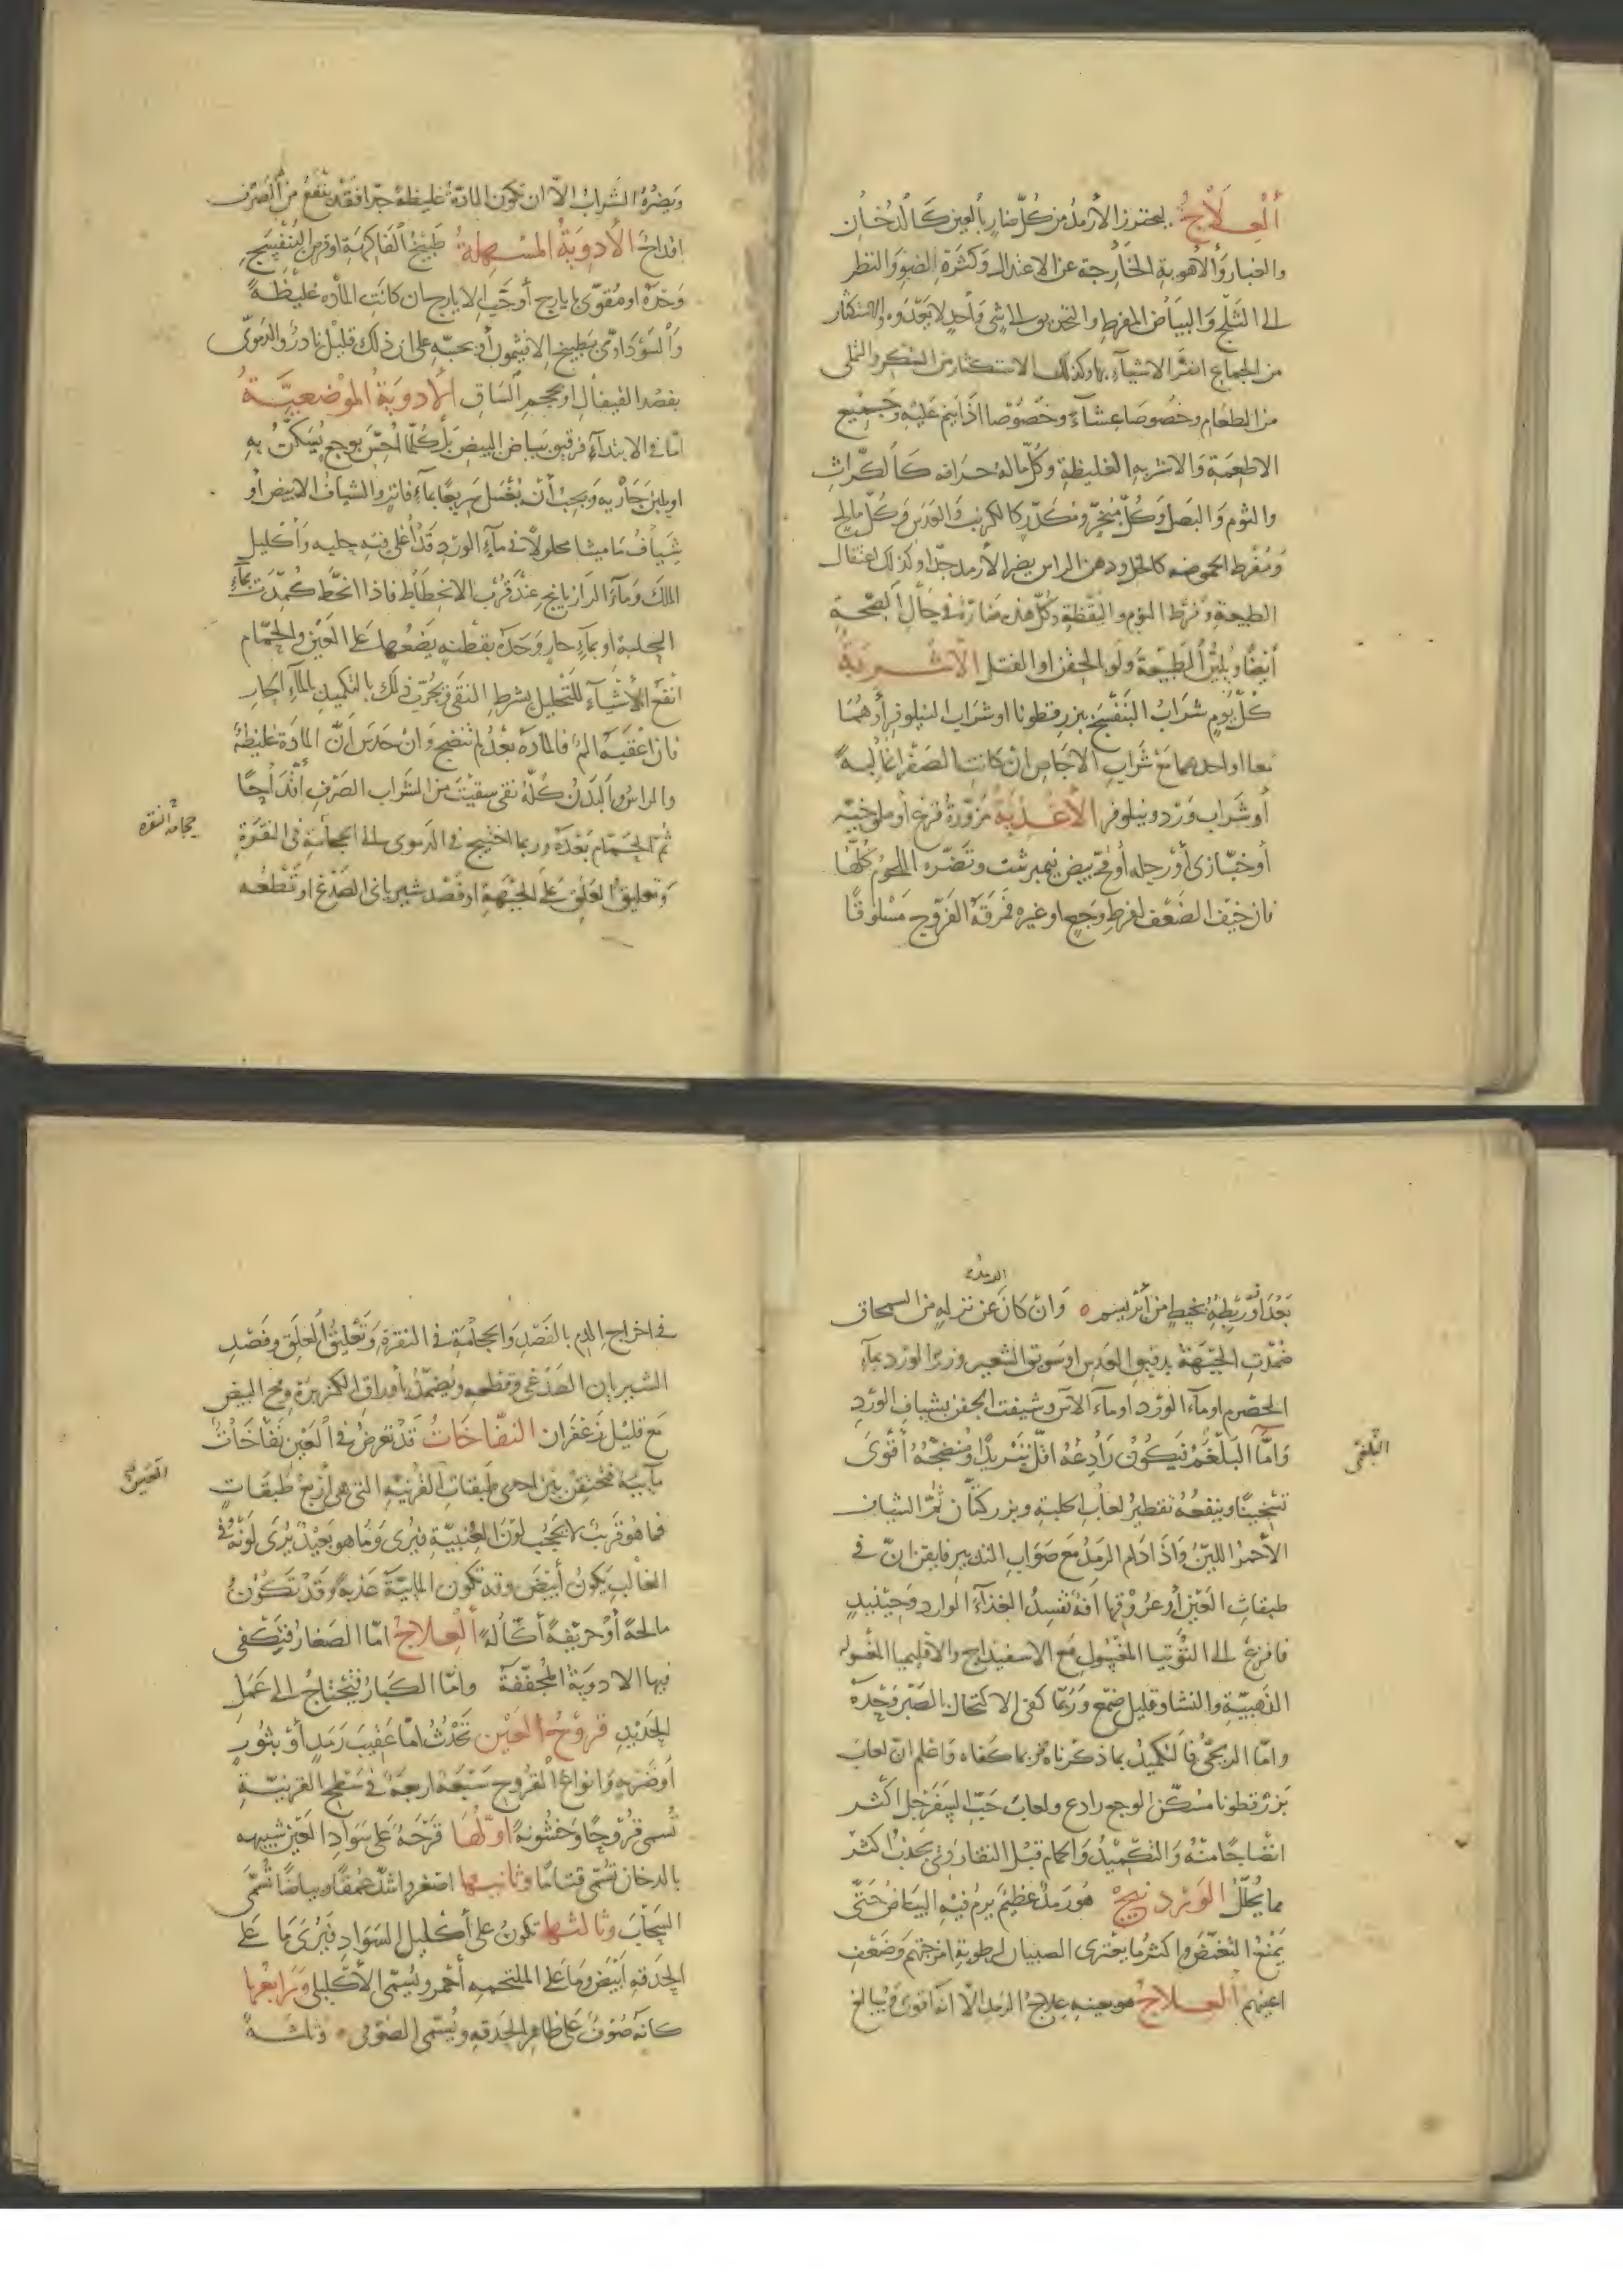 ألعلاج ليحترز الأرمد من كل ضار بألعين كالدخان
والغبار وألأهوية الخارجة عن الاعتدال وكثرة الضوء والنظر
الى الثلج والبياض المفرط والتحديق الى شي واحد لا يعدوه والاستكثار
من الجماع اضر الاشياء به وكذلك الاستكثار من السكر والتملى
من الطعام وخصوصا عشاء وخصوصا اذا ينم عليه وجميع
الاطعمة والاشربه الغليظة وكل ماله حرافه كالكراث
والثوم والبصل وكل مبخر ومكدر كالكرنب والعدس وكل مالح
ومفرط الحموضه كالخل ودهن الراس يضر الأرمد جدا وكذلك اعتقال
الطبيعة وفرط النوم واليقظة وكل هذه ضارة في حال الصحة
أيضا ويلين ألطبيعة ولو بالحقن او الفتل الأشربة
كل يوم شراب البنفسج ببزر قطونا او شراب النيلوفر أو هما
معا او احدهما مع شراب الاجاص ان كانت الصفرا غالبة
أو شراب ورد ونيلوفر الأغذية مزورة قرع أو ملوخيه
أو خبازى أو رجله أو مح بيض نيمبرشت وتضره اللحوم كلها
فان خيف الضعف لفرط وجع او غيره فمرقة الفروج مسلوقا
ويضره الشراب الا ان تكون المادة غليظة جدا فقد ينتفع من الصرف
اقداح الأدوية المسهلة طبيخ ألفاكهة او قرص البنفسج
وحده او مقوى بايارج أو حب الايارج ان كانت الماده غليظة
وألسوداوى بطبيخ الافتيمون أو بحبه على ان ذلك قليل نادر والدموى
بفصد القيفال او محجم الساق الأدوية الموضعية
اما في الابتداء فرقيق بياض البيض بل كلما احس بوجع يسكن به
او بلبن جارية ويجب أن يغسل سريعا بماء فاتر والشياف الابيض أو
شياف ماميثا محلولا في ماء الورد قد أغلى فيه حلبه وأكليل
الملك وماء الرازيانج عند قرب الانحطاط فاذا انحط كمدت بماء
الحلبة او بماء حار وحده بقطنه يضعها على العين والحمام
انفع الأشياء للتحليل بشرط النقى ويجرب ذلك بالتكميد بالماء الحار
فان اعقبه الم فالمادة بعد لم تنضج وان حدس أن المادة غليظة
والراس وألبدن كله نقى سقيت من الشراب الصرف أقداحا
ثم الحمام بعده وربما احتيج في الدموى الى الحجامة في النقرة
وتعليق العلق على الجبهة او فصد شريانى الصدغ او قطعه
حجامة النقرة
بعد ربطه بخيط من أبريسم وان كان عن نزلة من السمحاق
ضمدت الجبهة بدقيق العدس او سويق الشعير وزر الورد بماء
الحصرم او ماء الورد او ماء الاس وشيفت الجفن بشياف الورد
واما البلغم فيكون رادعه اقل تبريدا ومنضجه أقوى
البلغمى
تسخينا وينفعه تقطير لعاب الحلبة وبزر كتان ثم الشياف
الأحمر اللين واذا دام الرمد مع صواب التدبير فايقن ان في
طبقات العين أو عروقها افة تفسد الغذاء الوارد وحينئذ
فافزع الى التوتيا المغسول مع الاسفيداج والاقليميا المغسوله
الذهبية والنشا وقليل صمغ وربما كفى الاكتحال بالصبر وحده
واما الريحى فالتكميد بما ذكرناه ربما كفاه واعلم ان لعاب
بزر قطونا مسكن الوجع رادع ولعاب حب السفرجل اكثر
انضاجا منه والتكميد والحمام قبل النقا ردى يجذب اكثر
مما يحلل الوردنيج هو رمد عظيم يرم فيه البياض حتى
يمنع التغميض واكثر ما يعترى الصبيان لرطوبة امزجتهم وضعف
اعينهم العلاج هو بعينه علاج الرمد الا انه اقوى ويبالغ
في اخراج الدم بالفصد والحجامة في النقرة وتعليق العلق وفصد
الشريان الصدغى وقطعه ويضمد بأوراق الكزبرة ومح البيض
مع قليل زعفران النفاخات قد تعرض في العين نفاخات
مايية فتحتقن بين احدى طبقات القرنية التى هى أربع طبقات
فما هو قريب لا يحجب لون العنبية فيرى وما هو بعيد يرى لونه في
الغالب يكون أبيض وقد تكون المايية عذبة وقد تكون
مالحة أو حريفة أكالة ألعلاج اما الصغار فتكفى
فيها الادوية المجففة واما الكبار فيحتاج الى عمل
الحديد قروح العين تحدث اما عقيب رمد أو بثور
أو ضربه وانواع القروح سبعة اربعة في سطح القرنية
تسمى قروحا وخشونة اولها قرحة على سواد العين شبيهه
بالدخان تسمى قتاما وثانيها اصغر واشد عمقا وبياضا تسمى
السحاب وثالثها تكون على أكليل السواد فيرى ما على
الحدقه ابيض وما على الملتحمه أحمر ويسمى الأكليلى ورابعها
كانه صوف على ظاهر الحدقه ويسمى الصوفى وثلثة